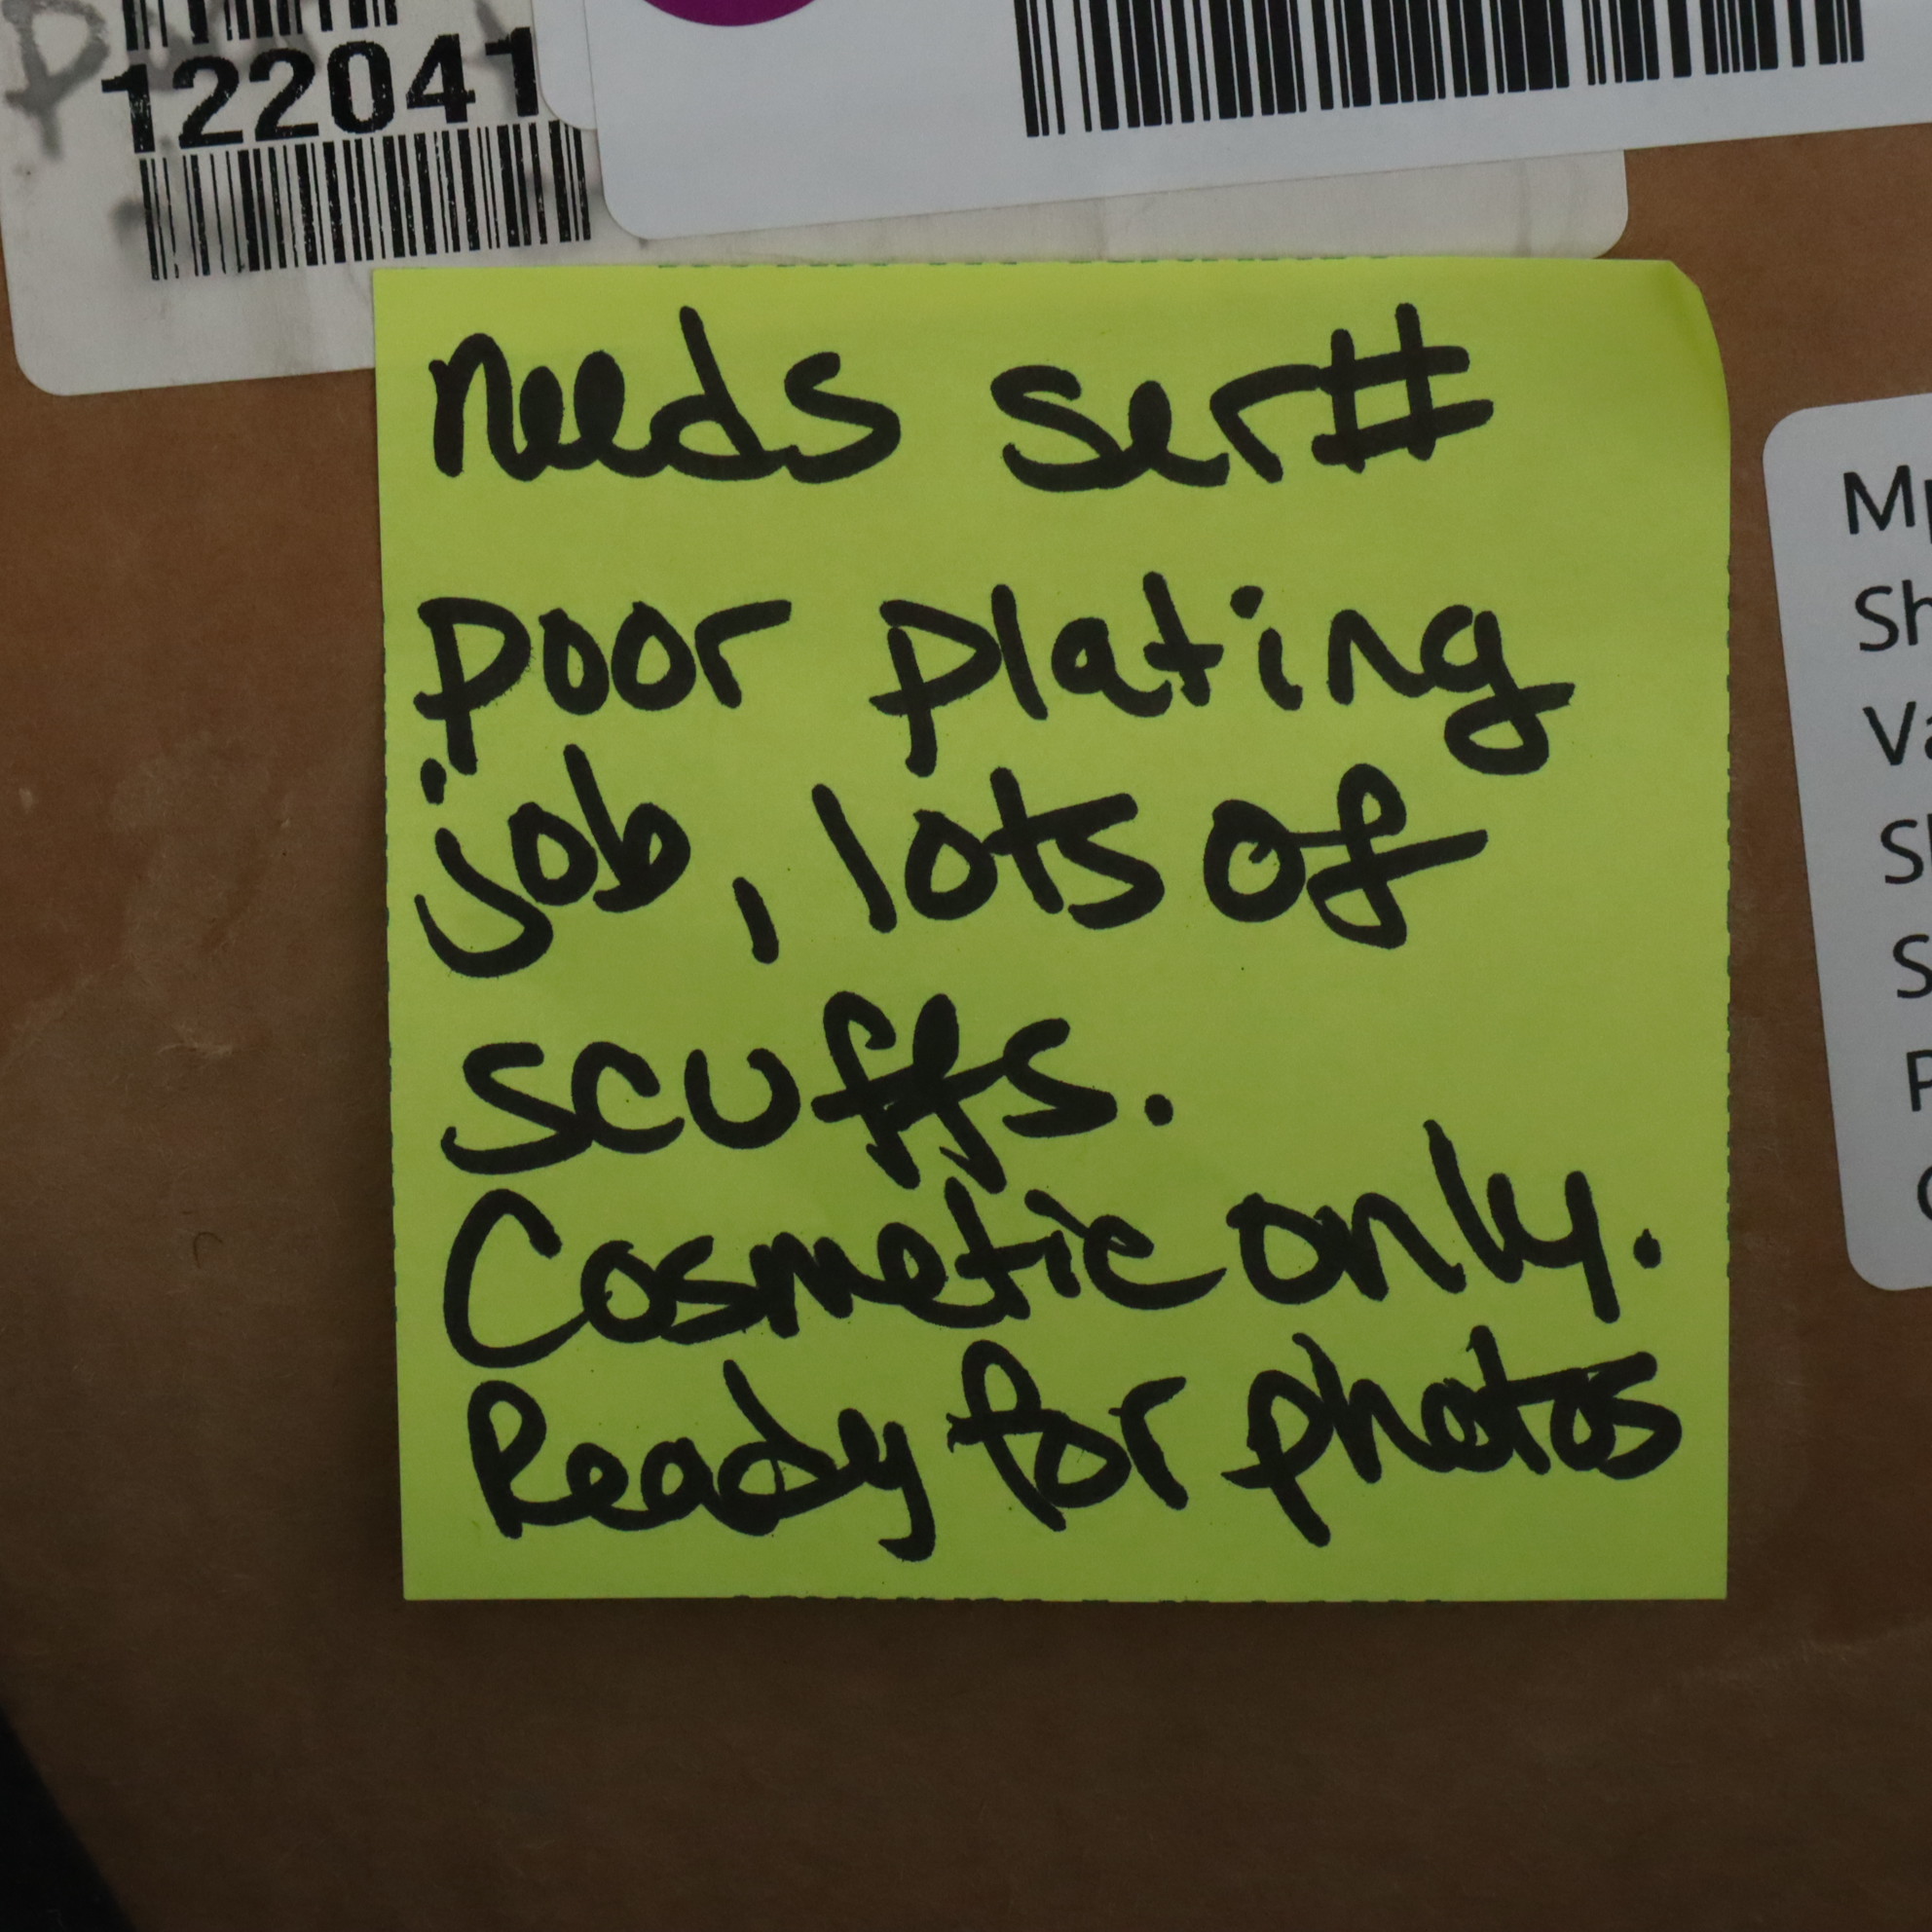 122041
needs ser#
poor plating
job, lots of
scuffs.
Cosmetic only.
Ready for photos